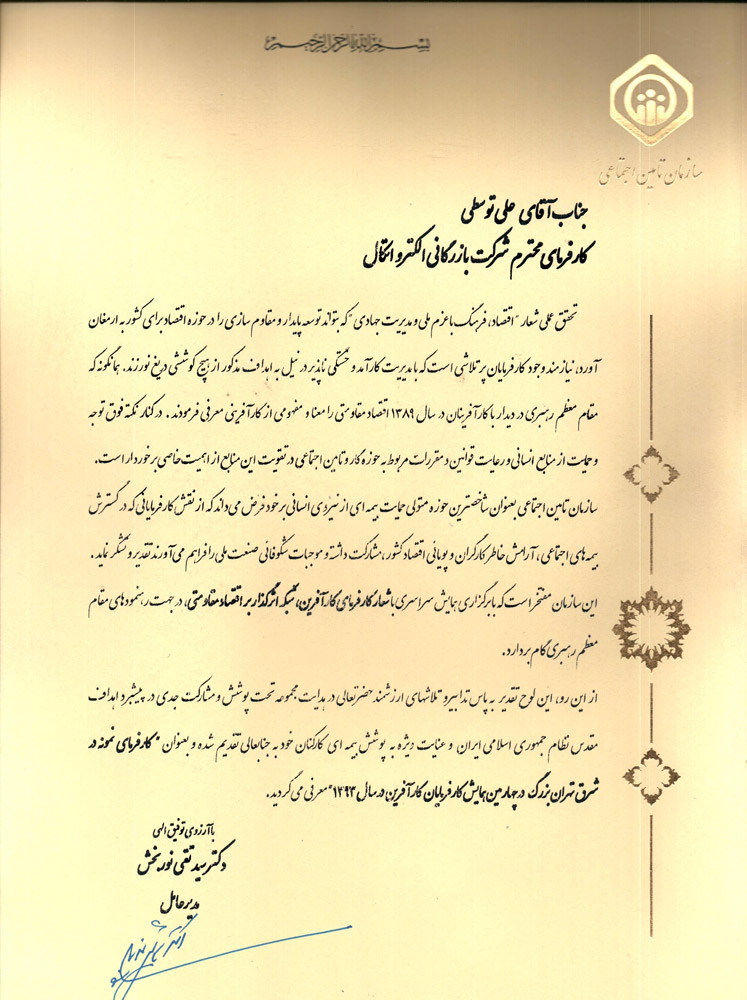 بسم الله الرحمن الرحیم
سازمان تامین اجتماعی
جناب آقای علی توسطی
کارفرمای محترم شرکت بازرگانی الکترو اتکال
تحقق عملی شعار "اقتصاد، فرهنگ با عزم ملی و مدیریت جهادی" که بتواند توسعه پایدار و مقاوم سازی را در حوزه اقتصاد برای کشور به ارمغان
آورد، نیازمند وجود کارفرمایان پرتلاشی است که با مدیریت کارآمد و خستگی ناپذیر در نیل به اهداف مذکور از هیچ کوششی دریغ نورزند. همانگونه که
مقام معظم رهبری در دیدار با کارآفرینان در سال ۱۳۸۹ اقتصاد مقاومتی را معنا و مفهومی از کارآفرینی معرفی فرمودند. در کنار نکته فوق توجه
و حمایت از منابع انسانی و رعایت قوانین و مقررات مربوط به حوزه کار و تامین اجتماعی در تقویت این منابع از اهمیت خاصی برخوردار است.
سازمان تامین اجتماعی بعنوان شاخصترین حوزه متولی حمایت بیمه ای از نیروی انسانی بر خود فرض می داند که از نقش کارفرمایانی که در گسترش
بیمه های اجتماعی، آرامش خاطر کارگران و پویائی اقتصاد کشور، مشارکت داشته و موجبات شکوفائی صنعت ملی را فراهم می آورند تقدیر و تشکر نماید.
این سازمان مفتخر است که با برگزاری همایش سراسری با شعار "کارفرمای کارآفرین، شبکه اثرگذار بر اقتصاد مقاومتی"، در جهت رهنمودهای مقام
معظم رهبری گام بردارد.
از این رو، این لوح تقدیر به پاس تدابیر و تلاشهای ارزشمند حضرتعالی در هدایت مجموعه تحت پوشش و مشارکت جدی در پیشبرد اهداف
مقدس نظام جمهوری اسلامی ایران و عنایت ویژه به پوشش بیمه ای کارکنان خود به جنابعالی تقدیم شده و بعنوان "کارفرمای نمونه در
شرق تهران بزرگ در چهارمین همایش کارفرمایان کارآفرین در سال ۱۳۹۳" معرفی می گردید.
با آرزوی توفیق الهی
دکتر سید تقی نوربخش
مدیرعامل